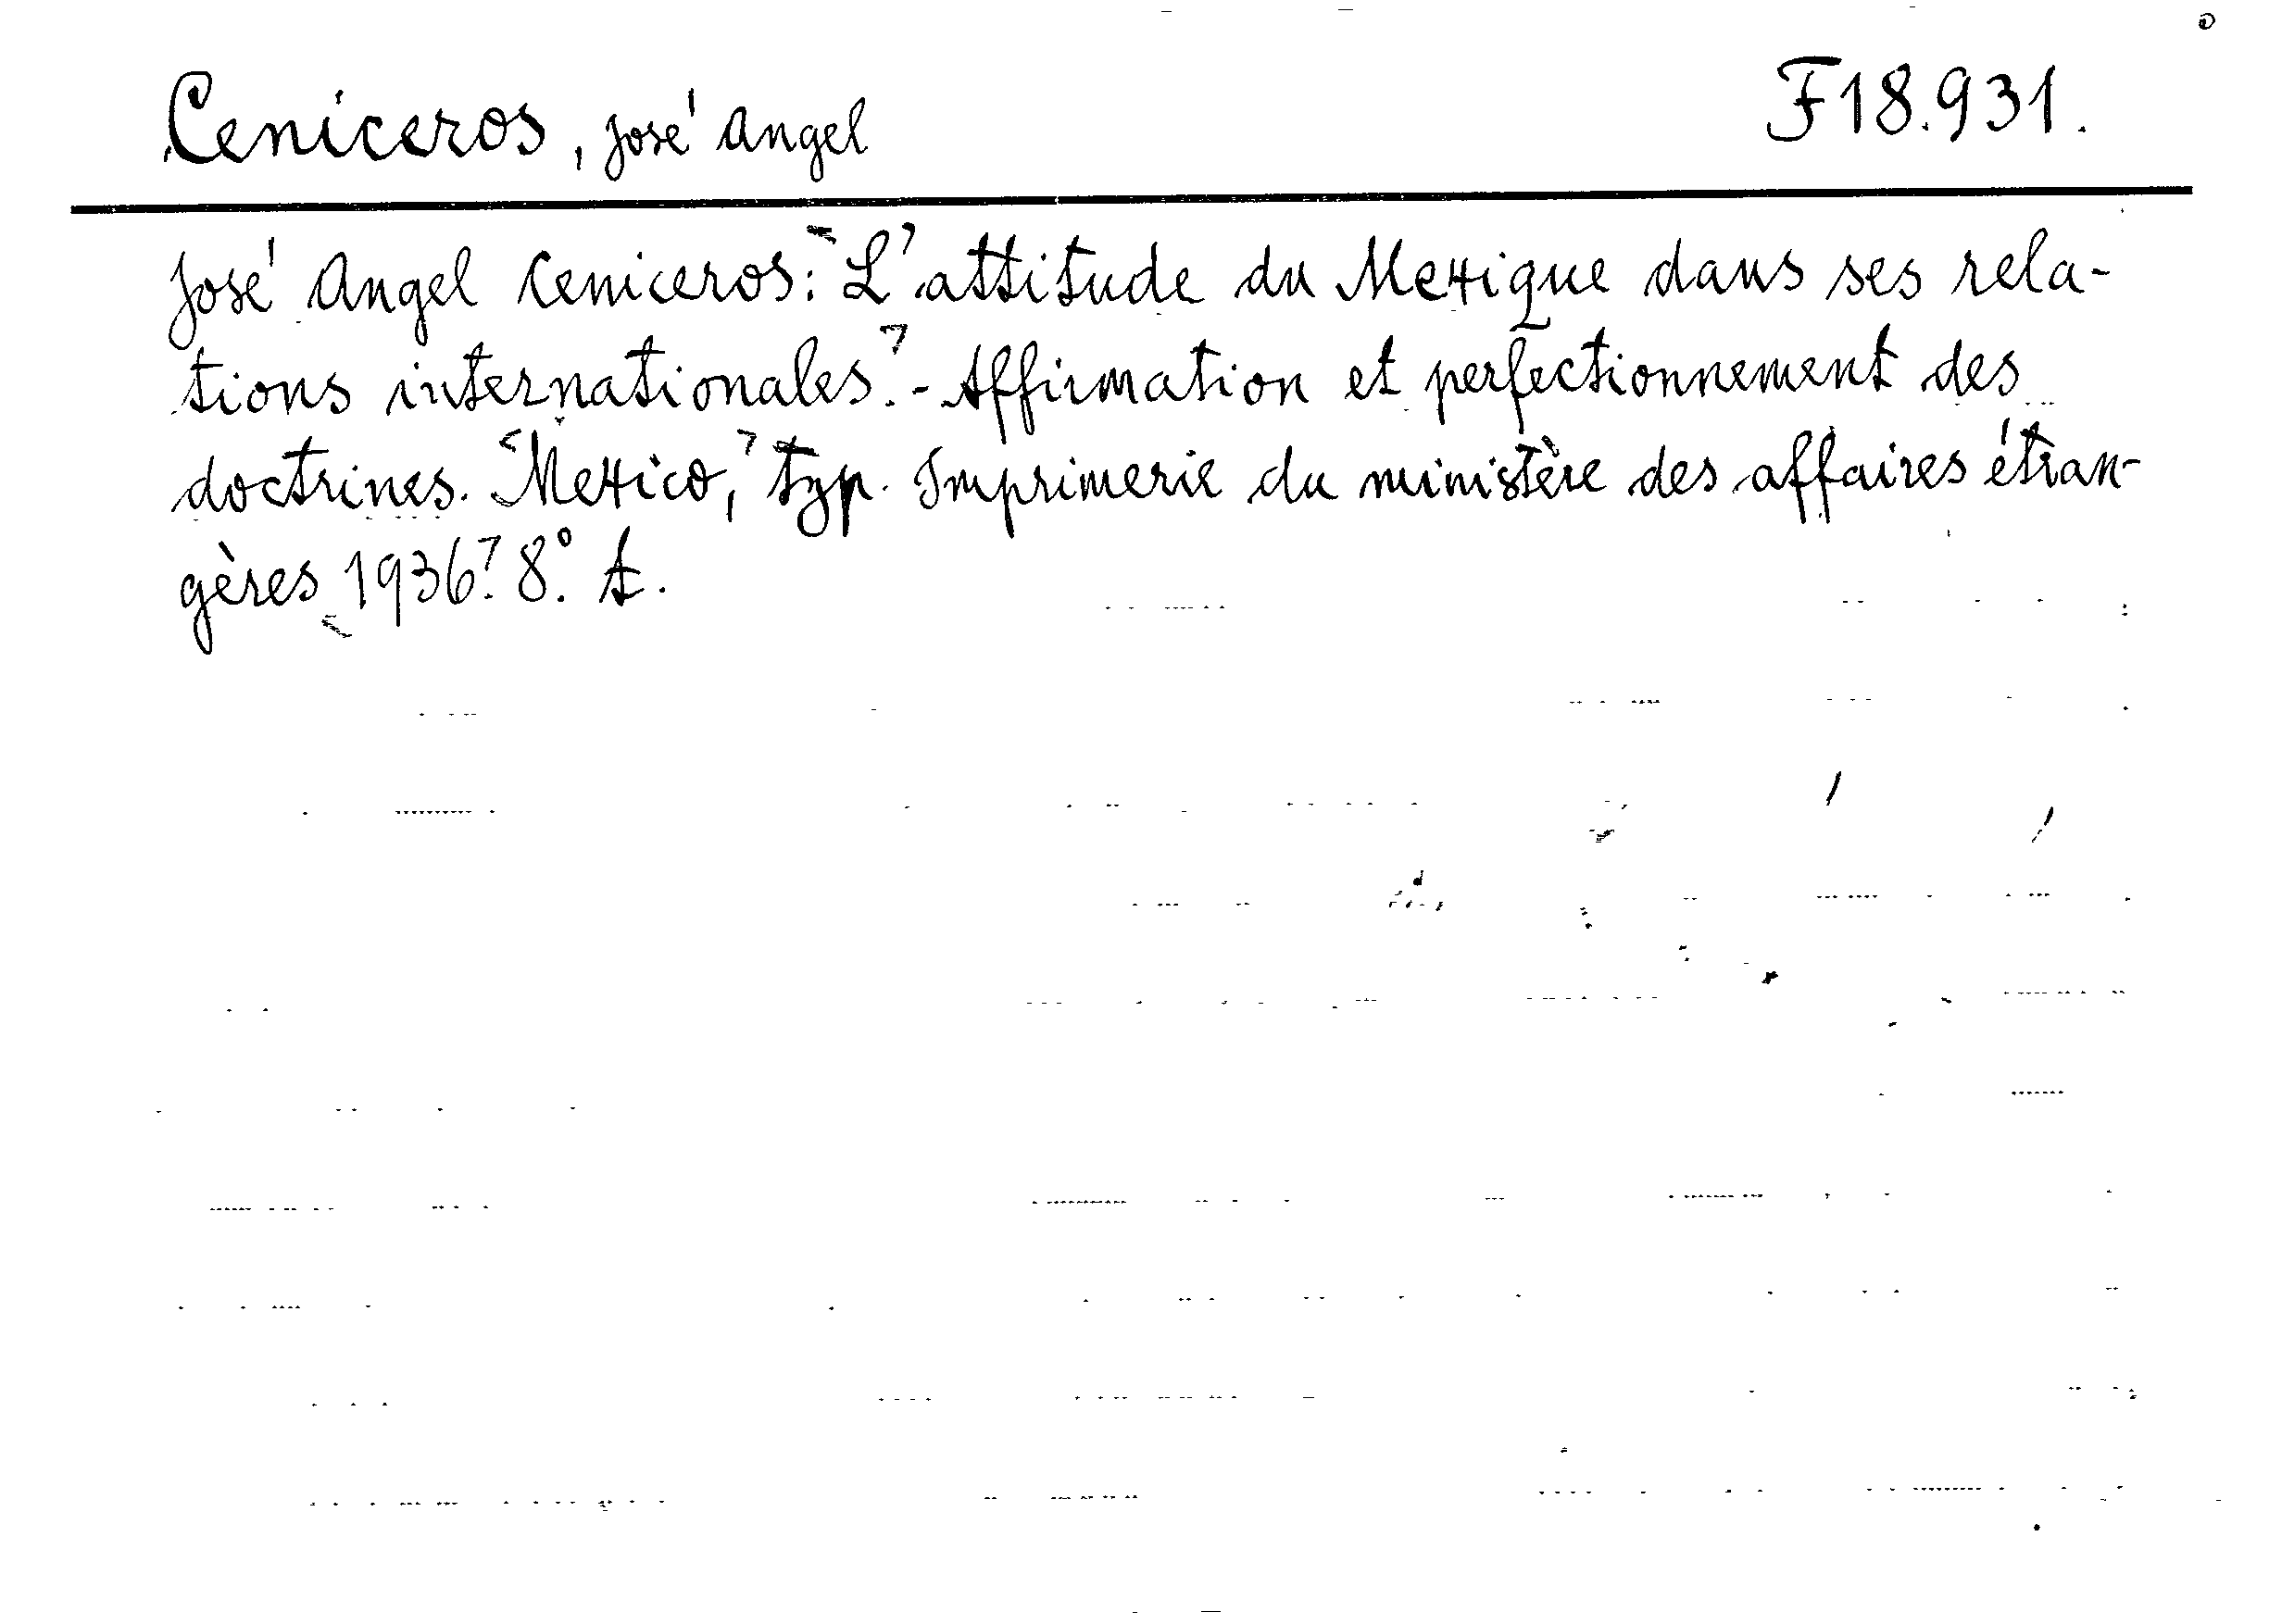 Ceniceros, José Angel F18.931.
José Angel Ceniceros: "L'attitude du Mexique dans ses rela-
tions internationales". - Affirmation et perfectionnement des
doctrines. "Mexico," typ. Imprimerie du ministère des affaires étran-
gères "1936". 8°. A.